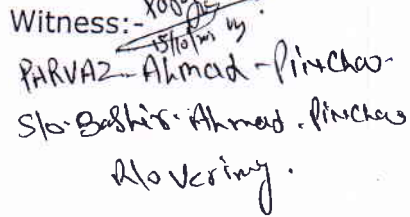 Witness:-
PARVAZ - Ahmad - Pinchoo -
S/o - Bashir - Ahmad. Pinchoo
R/o Vering.